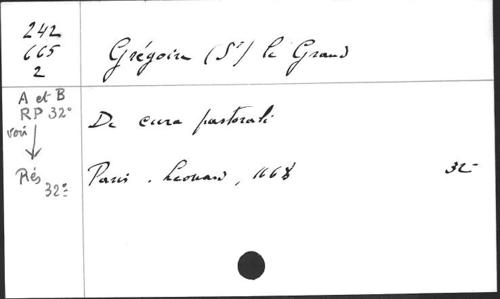 242
665
2
Grégoire (St) le Grand
A et B
RP 32°
voir
Rés
32°
De cura pastorali
Paris. Leonard, 1668
32-